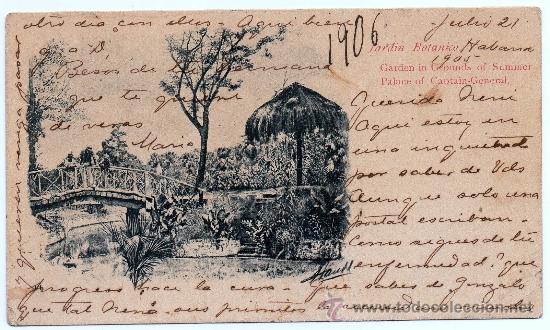 Julio 21
Habana
1905
1906
Jardin Botanico
Garden in Grounds of Summer
Palace of Captain-General.
Querido Neni
Aqui estoy en
una inquietud
por saber de Vds
Aunque solo una
postal escriban
Como sigues de tu
enfermedad? que
progreso hace la cura - que sabes de Gonzalo
que tal Nena sus primitos
otro dia con ellos - Aqui bien
Besos de tu hermana
que te quiere
de veras
Maria
todocoleccion.net